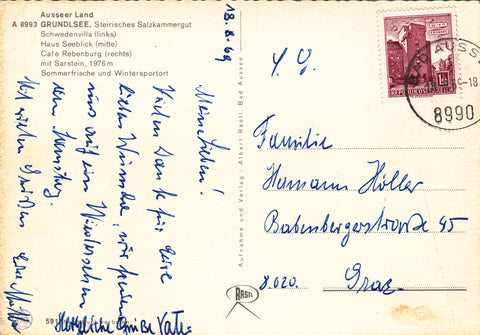 Ausseer Land
A 8993 GRUNDLSEE, Steirisches Salzkammergut
Schwedenvilla (links)
Haus Seeblick (mitte)
Café Rebenburg (rechts)
mit Sarstein, 1976 m
Sommerfrische und Wintersportort
18.8.69
Meine Lieben!
Vielen Dank für Eure
lieben Wünsche, wir freuen
uns auf ein Wiedersehen
am Samstag.
Mit vielen Grüßen
Herzliche Grüße Vati
Aufnahme und Verlag: Albert Rastl, Bad Aussee
REPUBLIK ÖSTERREICH
BAD AUSSEE
8990
Familie
Hermann Höller
Babenbergerstraße 45
8020. Graz
RASTL
591